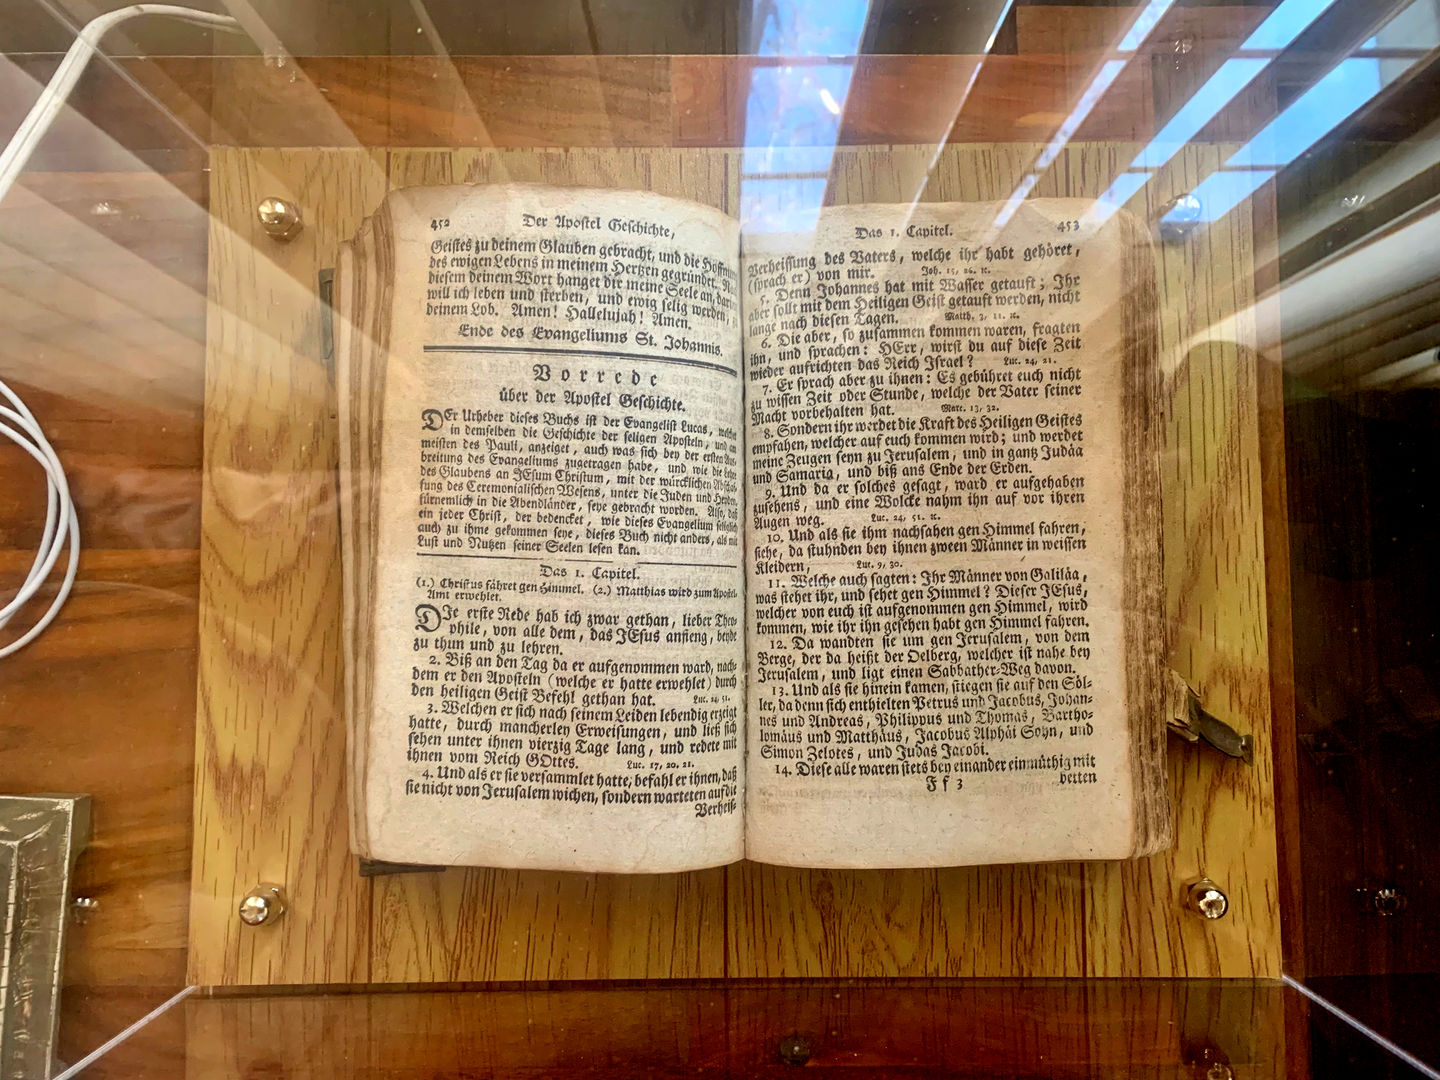 452 Der Apostel Geschichte,
Geistes zu deinem Glauben gebracht, und die Hoffnung
des ewigen Lebens in meinem Hertzen gegründet.
diesem deinem Wort hanget dir meine Seele an,
will ich leben und sterben, und ewig selig werden,
deinem Lob. Amen! Hallelujah! Amen.
Ende des Evangeliums St. Johannis.
Vorrede
über der Apostel Geschichte.
DEr Urheber dieses Buchs ist der Evangelist Lucas, welcher
in demselben die Geschichte der seligen Aposteln, und am
meisten des Pauli, anzeiget, auch was sich bey der ersten Aus-
breitung des Evangeliums zugetragen habe, und wie die Lehre
des Glaubens an JEsum Christum, mit der würcklichen Abschaf-
fung des Ceremonialischen Wesens, unter die Juden und Heyden,
fürnemlich in die Abendländer, seye gebracht worden. Also, daß
ein jeder Christ, der bedencket, wie dieses Evangelium seliglich
auch zu ihme gekommen seye, dieses Buch nicht anders, als mit
Lust und Nutzen seiner Seelen lesen kan.
Das 1. Capitel.
(1.) Christus fähret gen Himmel. (2.) Matthias wird zum Apostel-
Amt erwehlet.
DJe erste Rede hab ich zwar gethan, lieber Theo-
phile, von alle dem, das JEsus anfieng, beyde
zu thun und zu lehren.
2. Biß an den Tag da er aufgenommen ward, nach-
dem er den Aposteln (welche er hatte erwehlet) durch
den heiligen Geist Befehl gethan hat. Luc. 24, 51.
3. Welchen er sich nach seinem Leiden lebendig erzeigt
hatte, durch mancherley Erweisungen, und ließ sich
sehen unter ihnen vierzig Tage lang, und redete mit
ihnen vom Reich GOttes. Luc. 17, 20. 21.
4. Und als er sie versammlet hatte, befahl er ihnen, daß
sie nicht von Jerusalem wichen, sondern warteten auf die
Verheis-
Das 1. Capitel. 453
Verheissung des Vaters, welche ihr habt gehöret,
(sprach er) von mir. Joh. 15, 26. ꝛc.
5. Denn Johannes hat mit Wasser getauft; Ihr
aber sollt mit dem Heiligen Geist getauft werden, nicht
lange nach diesen Tagen. Matth. 3, 11. ꝛc.
6. Die aber, so zusammen kommen waren, fragten
ihn, und sprachen: HErr, wirst du auf diese Zeit
wieder aufrichten das Reich Jsrael? Luc. 24, 21.
7. Er sprach aber zu ihnen: Es gebühret euch nicht
zu wissen Zeit oder Stunde, welche der Vater seiner
Macht vorbehalten hat. Marc. 13, 32.
8. Sondern ihr werdet die Kraft des Heiligen Geistes
empfahen, welcher auf euch kommen wird; und werdet
meine Zeugen seyn zu Jerusalem, und in gantz Judäa
und Samaria, und biß ans Ende der Erden.
9. Und da er solches gesagt, ward er aufgehaben
zusehens, und eine Wolcke nahm ihn auf vor ihren
Augen weg. Luc. 24, 51. ꝛc.
10. Und als sie ihm nachsahen gen Himmel fahren,
siehe, da stuhnden bey ihnen zween Männer in weissen
Kleidern, Luc. 9, 30.
11. Welche auch sagten: Ihr Männer von Galiläa,
was stehet ihr, und sehet gen Himmel? Dieser JEsus,
welcher von euch ist aufgenommen gen Himmel, wird
kommen, wie ihr ihn gesehen habt gen Himmel fahren.
12. Da wandten sie um gen Jerusalem, von dem
Berge, der da heißt der Oelberg, welcher ist nahe bey
Jerusalem, und ligt einen Sabbather-Weg davon.
13. Und als sie hinein kamen, stiegen sie auf den Söl-
ler, da denn sich enthielten Petrus und Jacobus, Johan-
nes und Andreas, Philippus und Thomas, Bartho-
lomäus und Matthäus, Jacobus Alphäi Sohn, und
Simon Zelotes, und Judas Jacobi.
14. Diese alle waren stets bey einander einmüthig mit
F f 3 betten